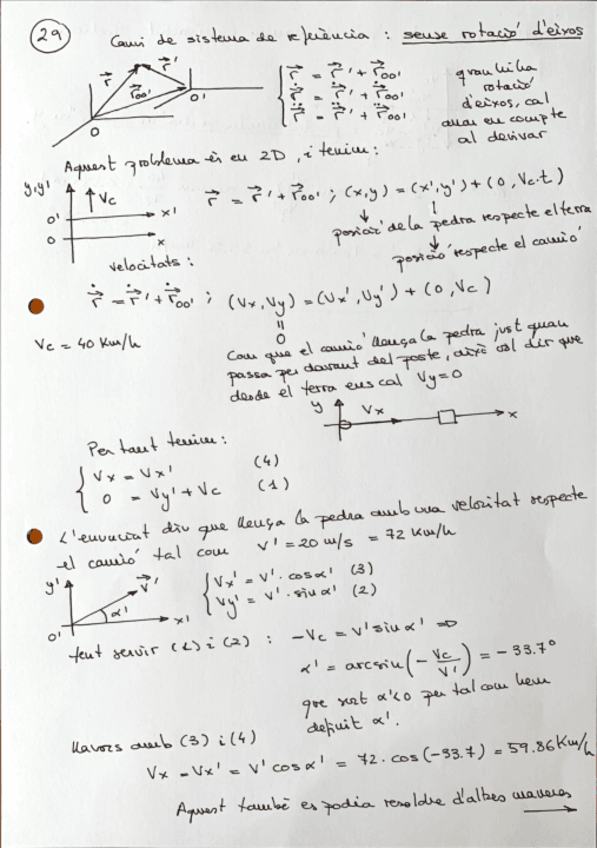 29
Canvi de sistema de referència : sense rotació d'eixos
r⃗ r⃗' r⃗oo' O O'
{ r⃗ = r⃗' + r⃗oo'
ṙ⃗ = ṙ⃗' + ṙ⃗oo'
r̈⃗ = r̈⃗' + r̈⃗oo'
quan hi ha
rotació
d'eixos, cal
en compte
al derivar
Aquest problema és en 2D, i tenim :
y,y' Vc O' x' O x
r⃗ = r⃗' + r⃗oo' ; (x,y) = (x',y') + (0, Vc·t)
posició de la pedra respecte el terra
posició respecte el camió
velocitats :
ṙ⃗ = ṙ⃗' + ṙ⃗oo' ; (Vx, Vy) = (Vx', Vy') + (0, Vc)
=
0
Vc = 40 Km/h
Com que el camió llença la pedra just quan
passa per davant del poste, això vol dir que
desde el terra ens cal Vy = 0
y Vx x
Per tant tenim :
{ Vx = Vx' (4)
0 = Vy' + Vc (1)
L'enunciat diu que llença la pedra amb una velocitat respecte
el camió tal com V' = 20 m/s = 72 Km/h
y' V⃗' α' x' O'
{ Vx' = V'· cosα' (3)
Vy' = V'· sinα' (2)
fent servir (1) i (2) : -Vc = V' sinα' ⇒
α' = arcsin(-Vc/V') = -33.7°
que surt α'<0 per tal com hem
definit α'.
Llavors amb (3) i (4)
Vx = Vx' = V' cosα' = 72· cos(-33.7) = 59.86 Km/h
Aquest també es podia resoldre d'altres maneres